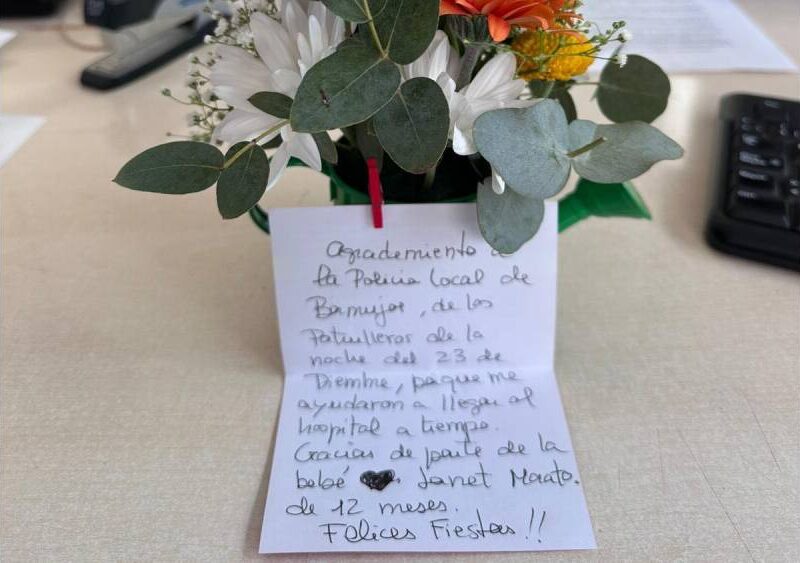 Agrademiento a
la Policia Local de
Bamujos, de los
Patrulleros de la
noche del 23 de
Diembre, paque me
ayudaron a llegar al
hospital a tiempo.
Gracias de parte de la
bebé Janet
de 12 meses.
Felices Fiestas!!